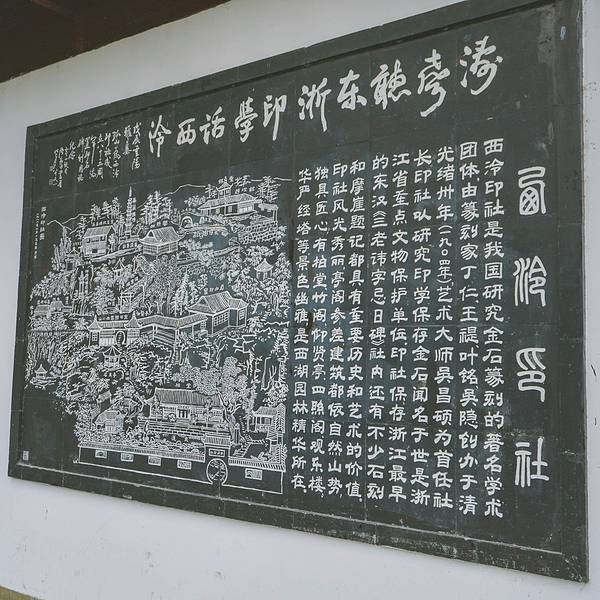 涛聲聽东浙印學话西泠
西泠印社
西泠印社是我国研究金石篆刻的著名学术
团体由篆刻家丁仁王褆叶铭吴隐创办于清
光绪卅年(一九〇四年)艺术大师吴昌硕为首任社
长印社以研究印学保存金石闻名于世是浙
江省重点文物保护单位印社保存浙江最早
的东汉《三老讳字忌日碑》社内还有不少石刻
和摩崖题记都具有重要历史和艺术的价值.
印社风光秀丽亭阁参差建筑都依自然山势
独具匠心有柏堂竹阁仰贤亭四照阁观乐楼
华严经塔等景色幽雅是西湖园林精华所在.
西泠印社图